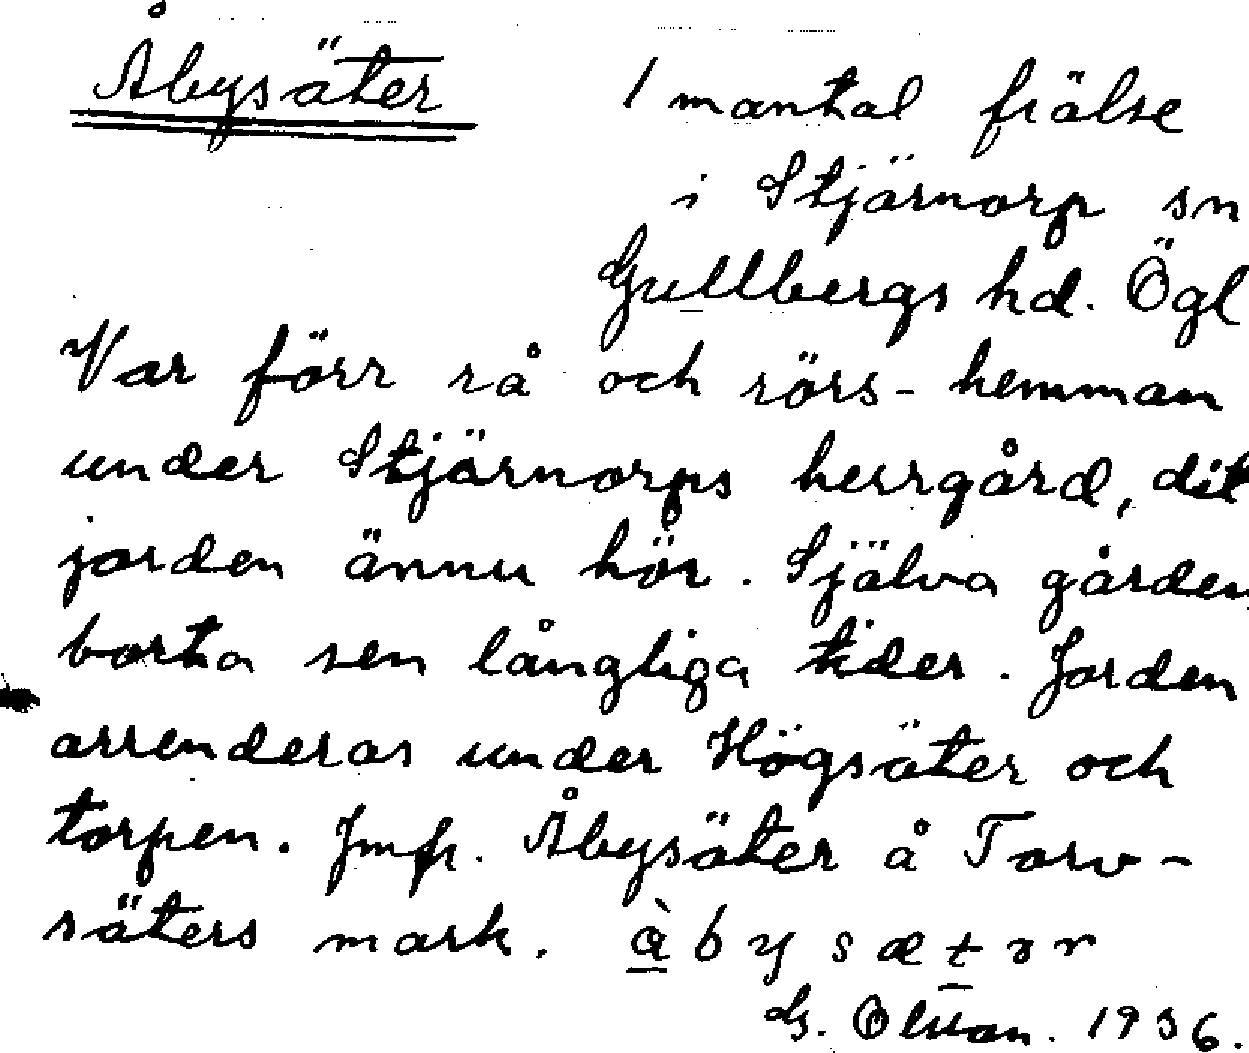 Åbysäter 1 mantal frälse
i Stjärnorp sn
Gullbergs hd. Ögl
Var förr rå och rörs-hemman
under Stjärnorps herrgård, dit
jorden ännu hör. Själva gården
borta sen långliga tider. Jorden
arrenderas under Högsäter och
torpen. Jmfr. Åbysäter å Torv-
säters mark. àbysætər
G. 1936.